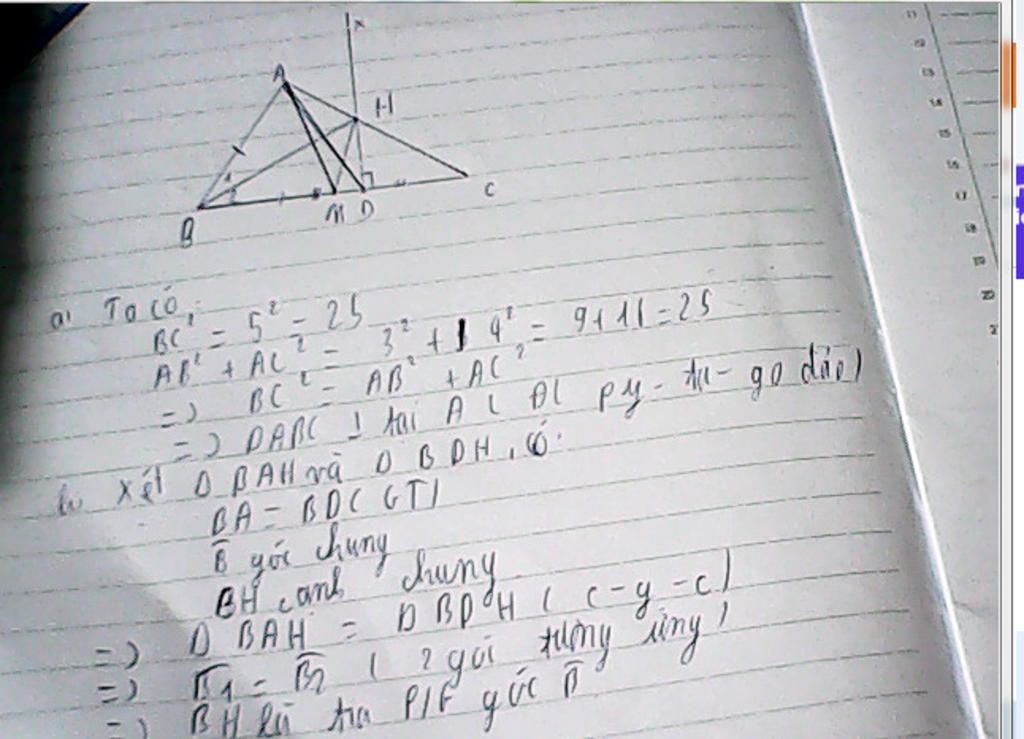 x
A
H
B
M
D
C
1
2
a, Ta có,
BC² = 5² = 25
AB² + AC² = 3² + 4² = 9+16=25
=) BC² = AB² + AC²
=) ΔABC ⊥ tại A ( ĐL py-ta-go đảo)
b, Xét Δ BAH và Δ BDH, có.
BA = BD( GT)
B góc chung
BH cạnh chung
=) Δ BAH = Δ BDH ( c-g-c)
=) B1 = B2 ( 2 góc tương ứng)
=) BH là tia P/G góc B
11
12
13
14
15
16
17
18
19
20